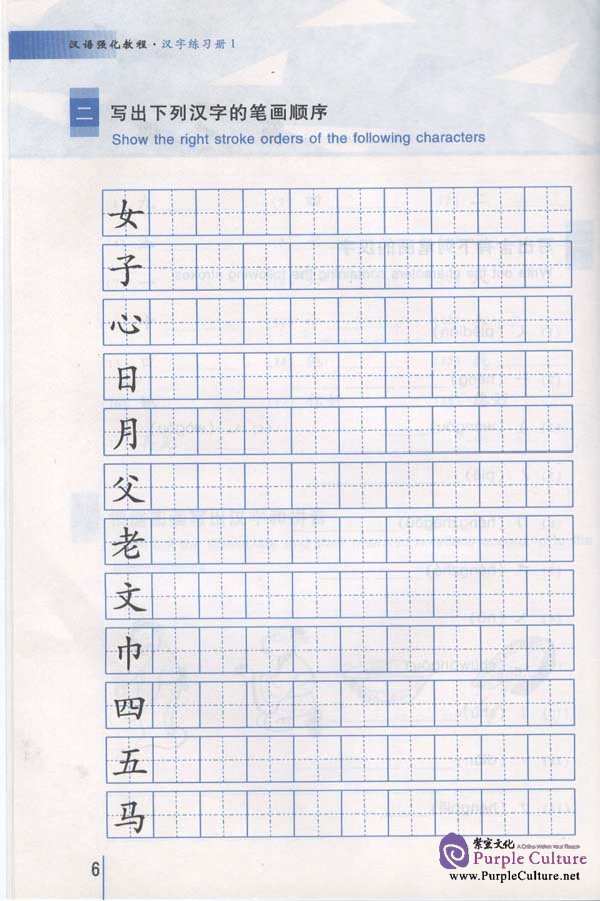 汉语强化教程·汉字练习册 1
二 写出下列汉字的笔画顺序
Show the right stroke orders of the following characters
女
子
心
日
月
父
老
文
巾
四
五
马
6
紫宣文化 A China Within Your Reach
Purple Culture
www.PurpleCulture.net